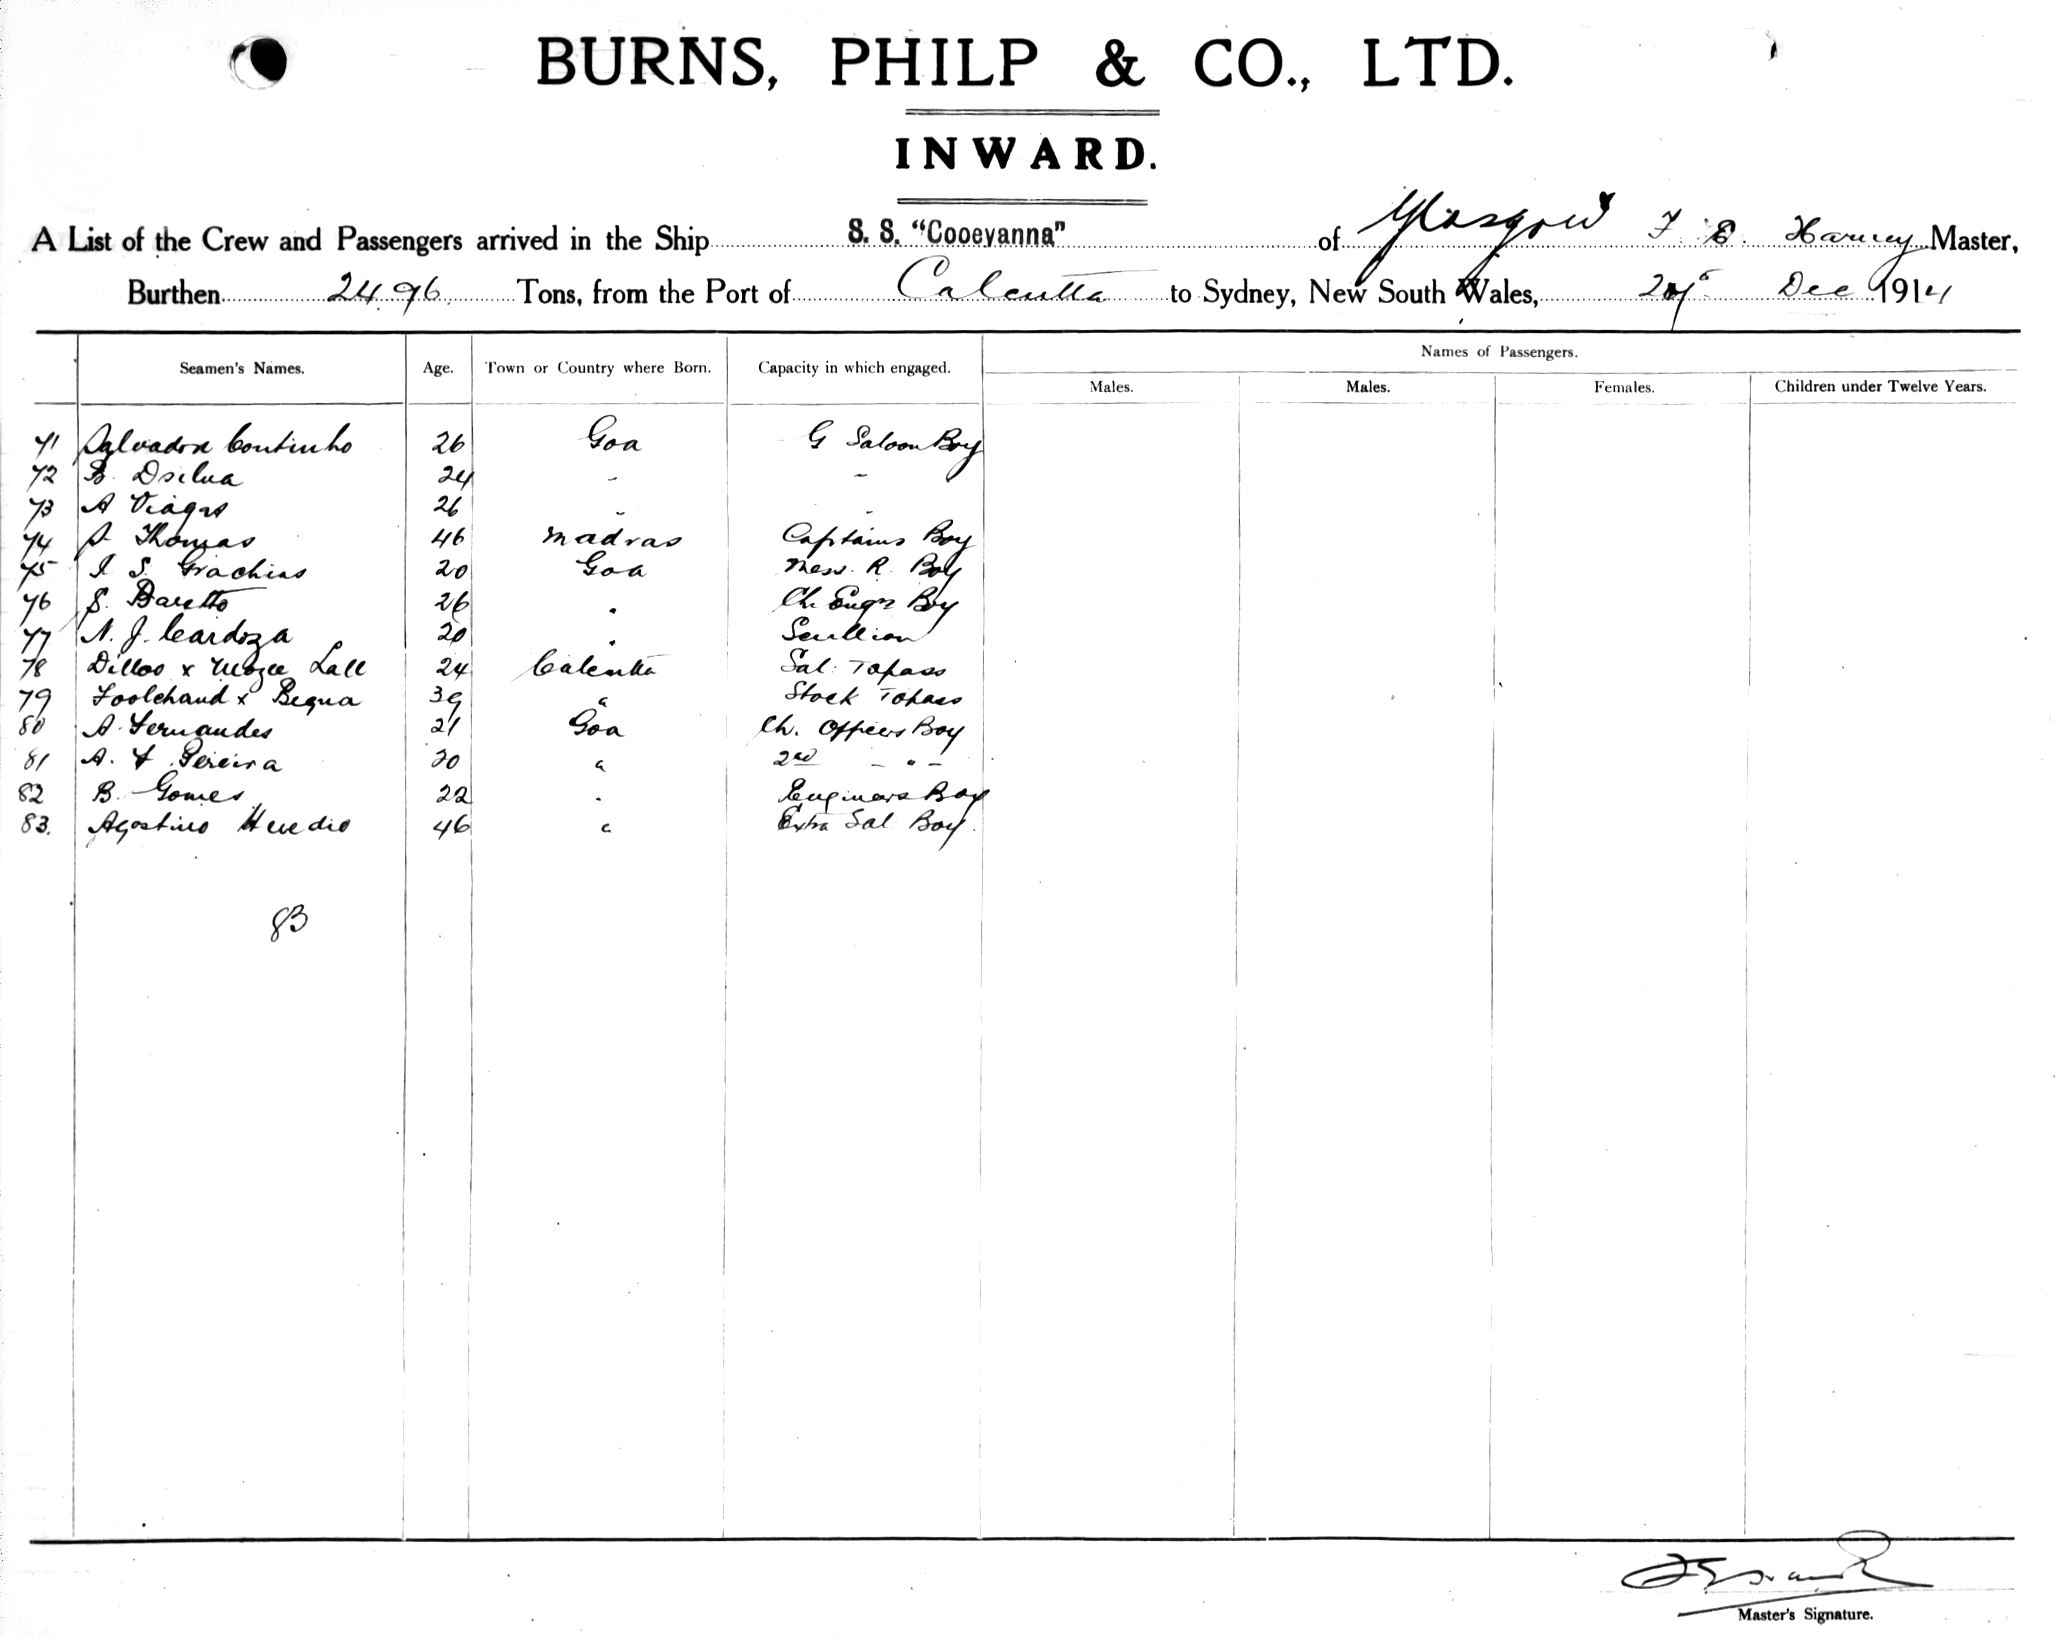 BURNS, PHILP & CO., LTD.
INWARD.
A List of the Crew and Passengers arrived in the Ship S. S. "Cooeyanna" of Glasgow F E. Harvey Master,
Burthen 2496 Tons, from the Port of Calcutta to Sydney, New South Wales, Dec 1914
Names of Passengers.
Seamen's Names. Age. Town or Country where Born. Capacity in which engaged.
Males. Males. Females. Children under Twelve Years.
71 Salvadore Coutinho 26 Goa G Saloon Boy
72 B. Dsilva 24 " "
73 A Viagas 26 " "
74 S. Thomas 46 Madras Captains Boy
75 I S. Grachias 20 Goa Mess. R. Boy
76 S. Baretto 26 " Ch. Engr Boy
77 N. J. Cardoza 20 " Scullion
78 Dilloo x Lall 24 Calcutta Sal. Topass
79 Foolchand x Begua 39 " Stock Topass
80 A. Fernandes 21 Goa Ch. Officers Boy
81 A. F Pereira 20 " 2nd - " -
82 B. Gomes 22 " Engineers Boy
83. Agostino 46 " Extra Sal Boy.
83
Master's Signature.